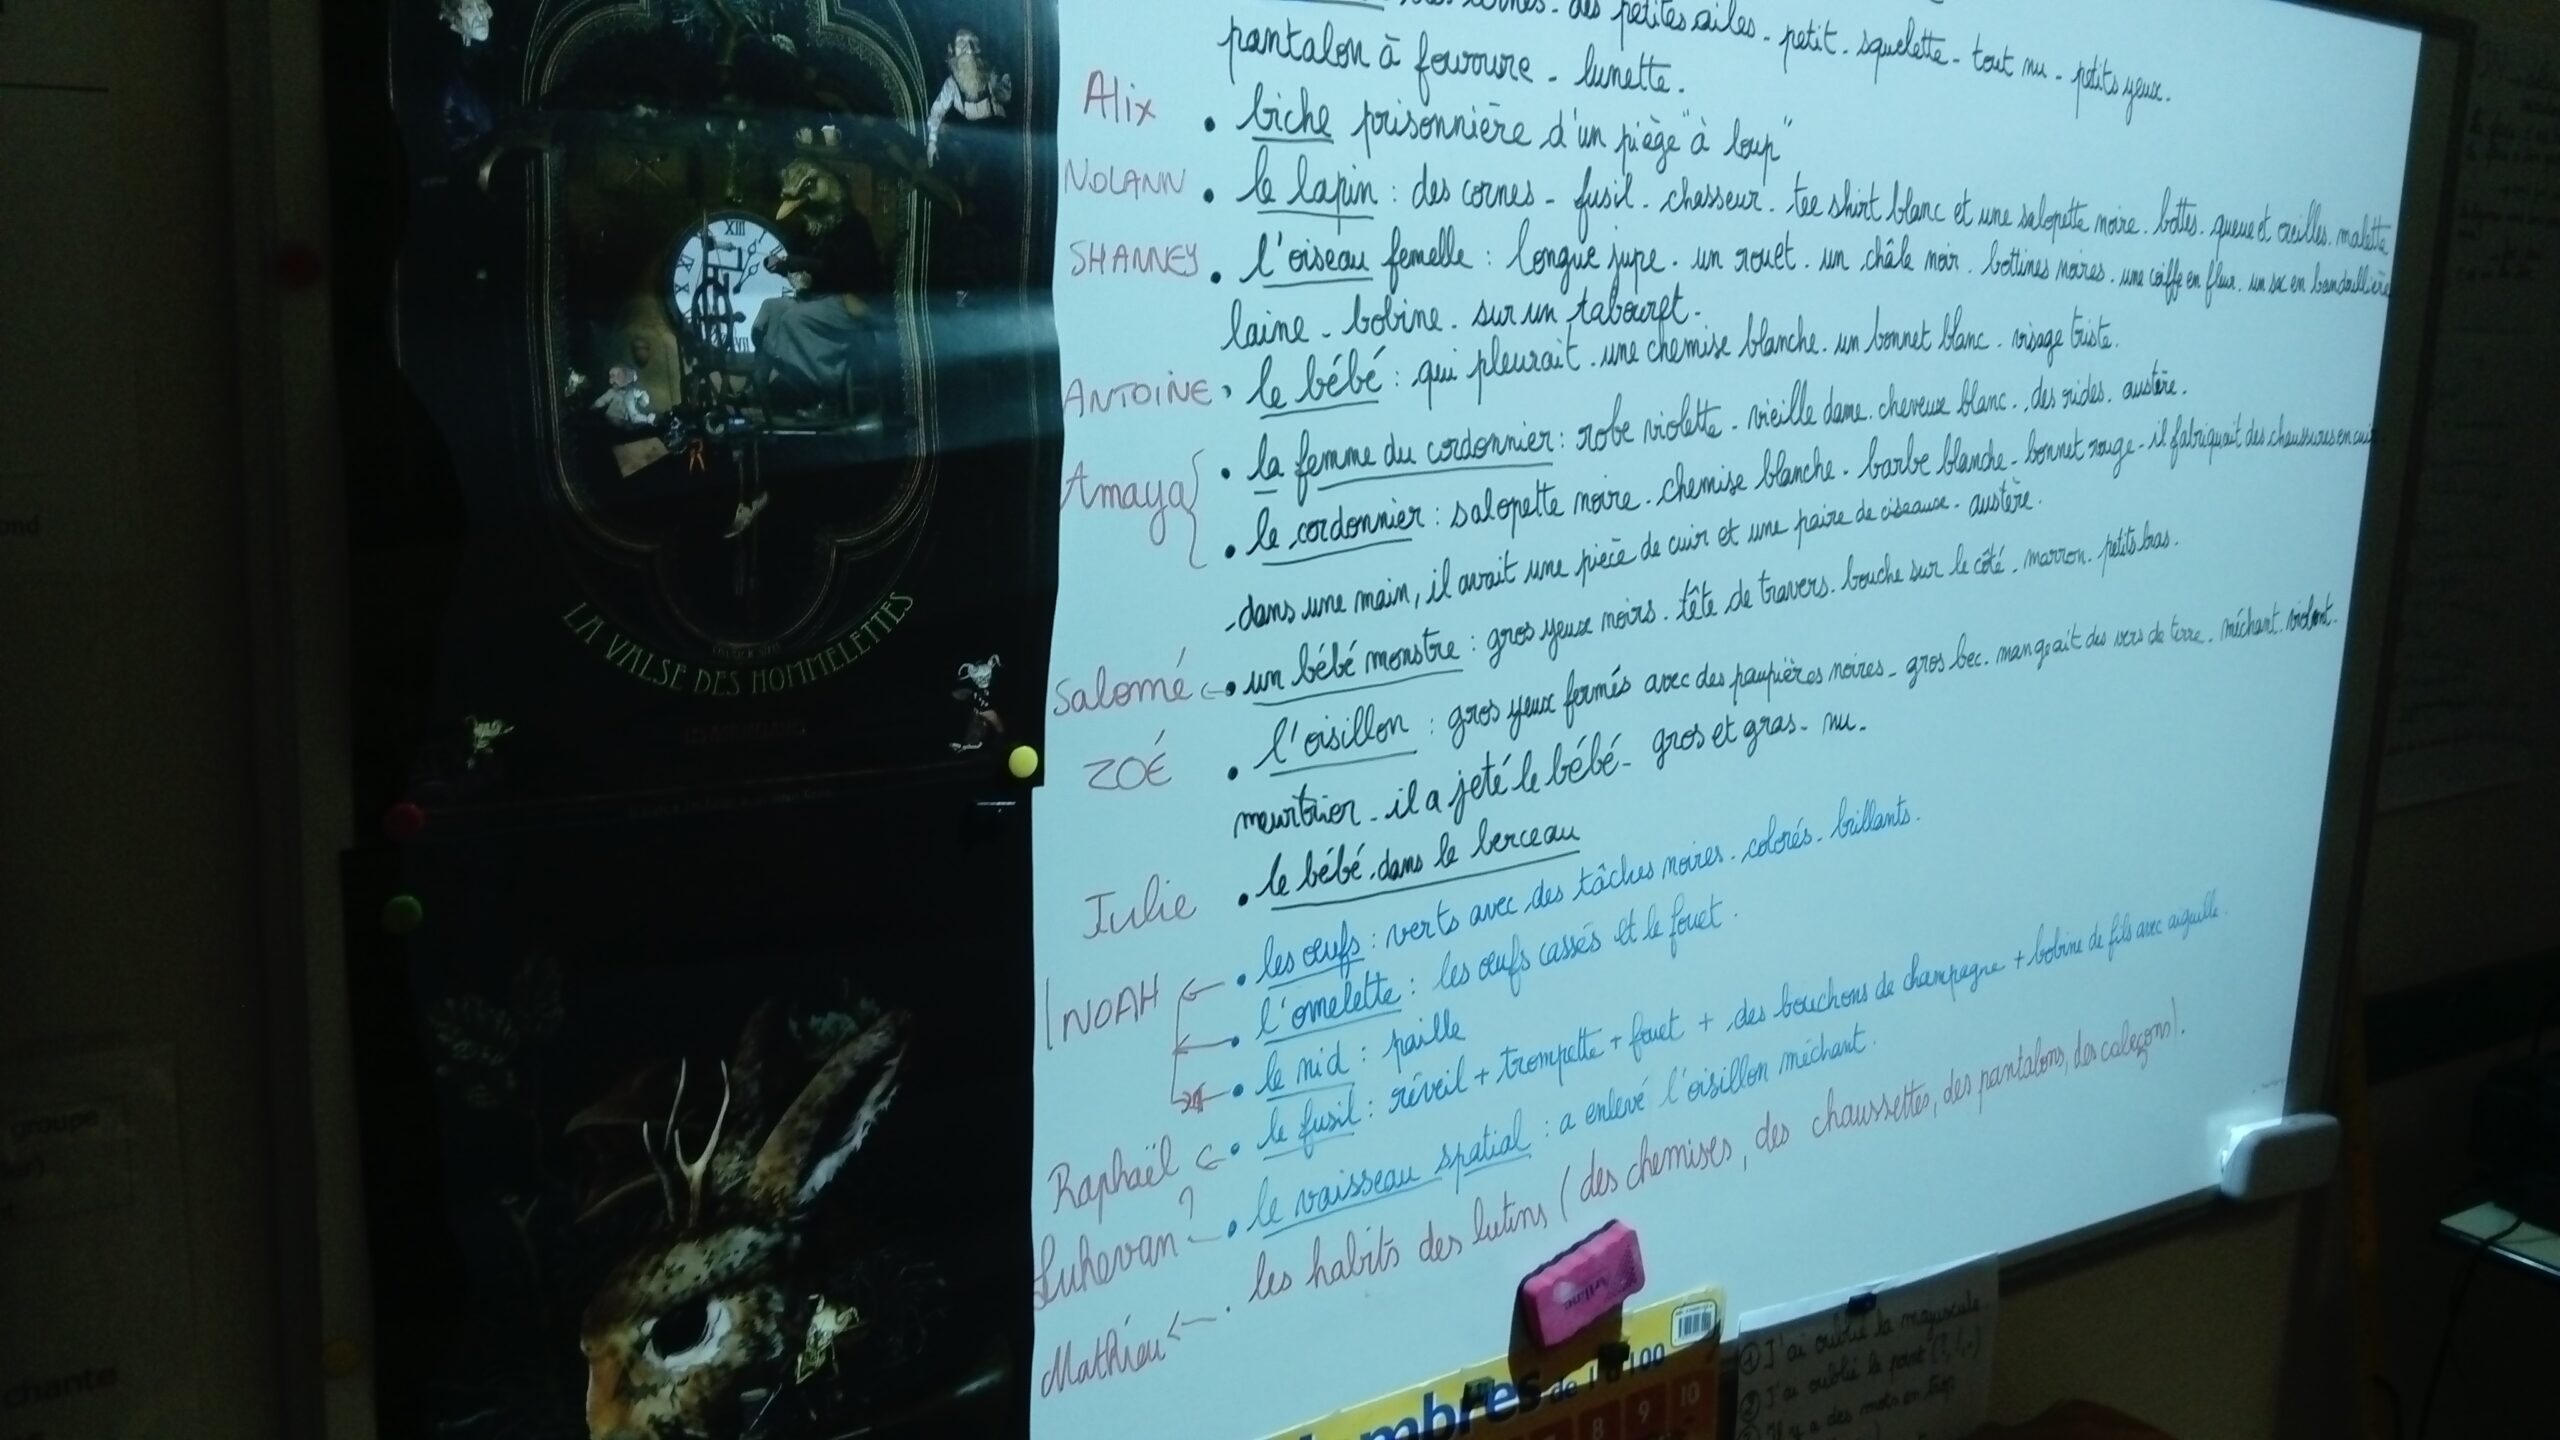 cornes - des petites ailes - petit - squelette - tout nu - petits yeux.
pantalon à fourrure - lunette.
Alix • biche prisonnière d'un piège "à loup"
NOLANN • le lapin : des cornes - fusil - chasseur - tee shirt blanc et une salopette noire. bottes. queue et oreilles. malette
SHANNEY • l'oiseau femelle : longue jupe. un rouet. un châle noir. bottines noires. une coiffe en fleur. un sac en bandouillière
laine - bobine. sur un tabouret.
ANTOINE • le bébé : qui pleurait. une chemise blanche. un bonnet blanc. visage triste.
Amaya { • la femme du cordonnier : robe violette - vieille dame. cheveux blanc. des rides. austère.
• le cordonnier : salopette noire. chemise blanche - barbe blanche - bonnet rouge - il fabriquait des chaussures en cuir
- dans une main, il avait une pièce de cuir et une paire de ciseaux. austère.
Salomé ← • un bébé monstre : gros yeux noirs. tête de travers. bouche sur le côté. marron. petits bras.
ZOÉ • l'oisillon : gros yeux fermés avec des paupières noires - gros bec. mangeait des vers de terre. méchant. violent.
meurtrier - il a jeté le bébé - gros et gras - nu.
Julie • le bébé dans le berceau
NOAH ← • les œufs : verts avec des tâches noires. colorés. brillants.
← • l'omelette : les œufs cassés et le fouet.
• le nid : paille
Raphaël ← • le fusil : réveil + trompette + fouet + des bouchons de champagne + bobine de fils avec aiguille.
Luhevan ? • le vaisseau spatial : a enlevé l'oisillon méchant.
Mathieu ← . les habits des lutins (des chemises, des chaussettes, des pantalons, des caleçons).
LA VALSE DES HOMMELETTES
XII
ond
groupe
chante
mbres de 1 à 100
8 9 10
① J'ai oublié la majuscule.
② J'ai oublié le point (?, !, .)
③ Il y a des mots en trop